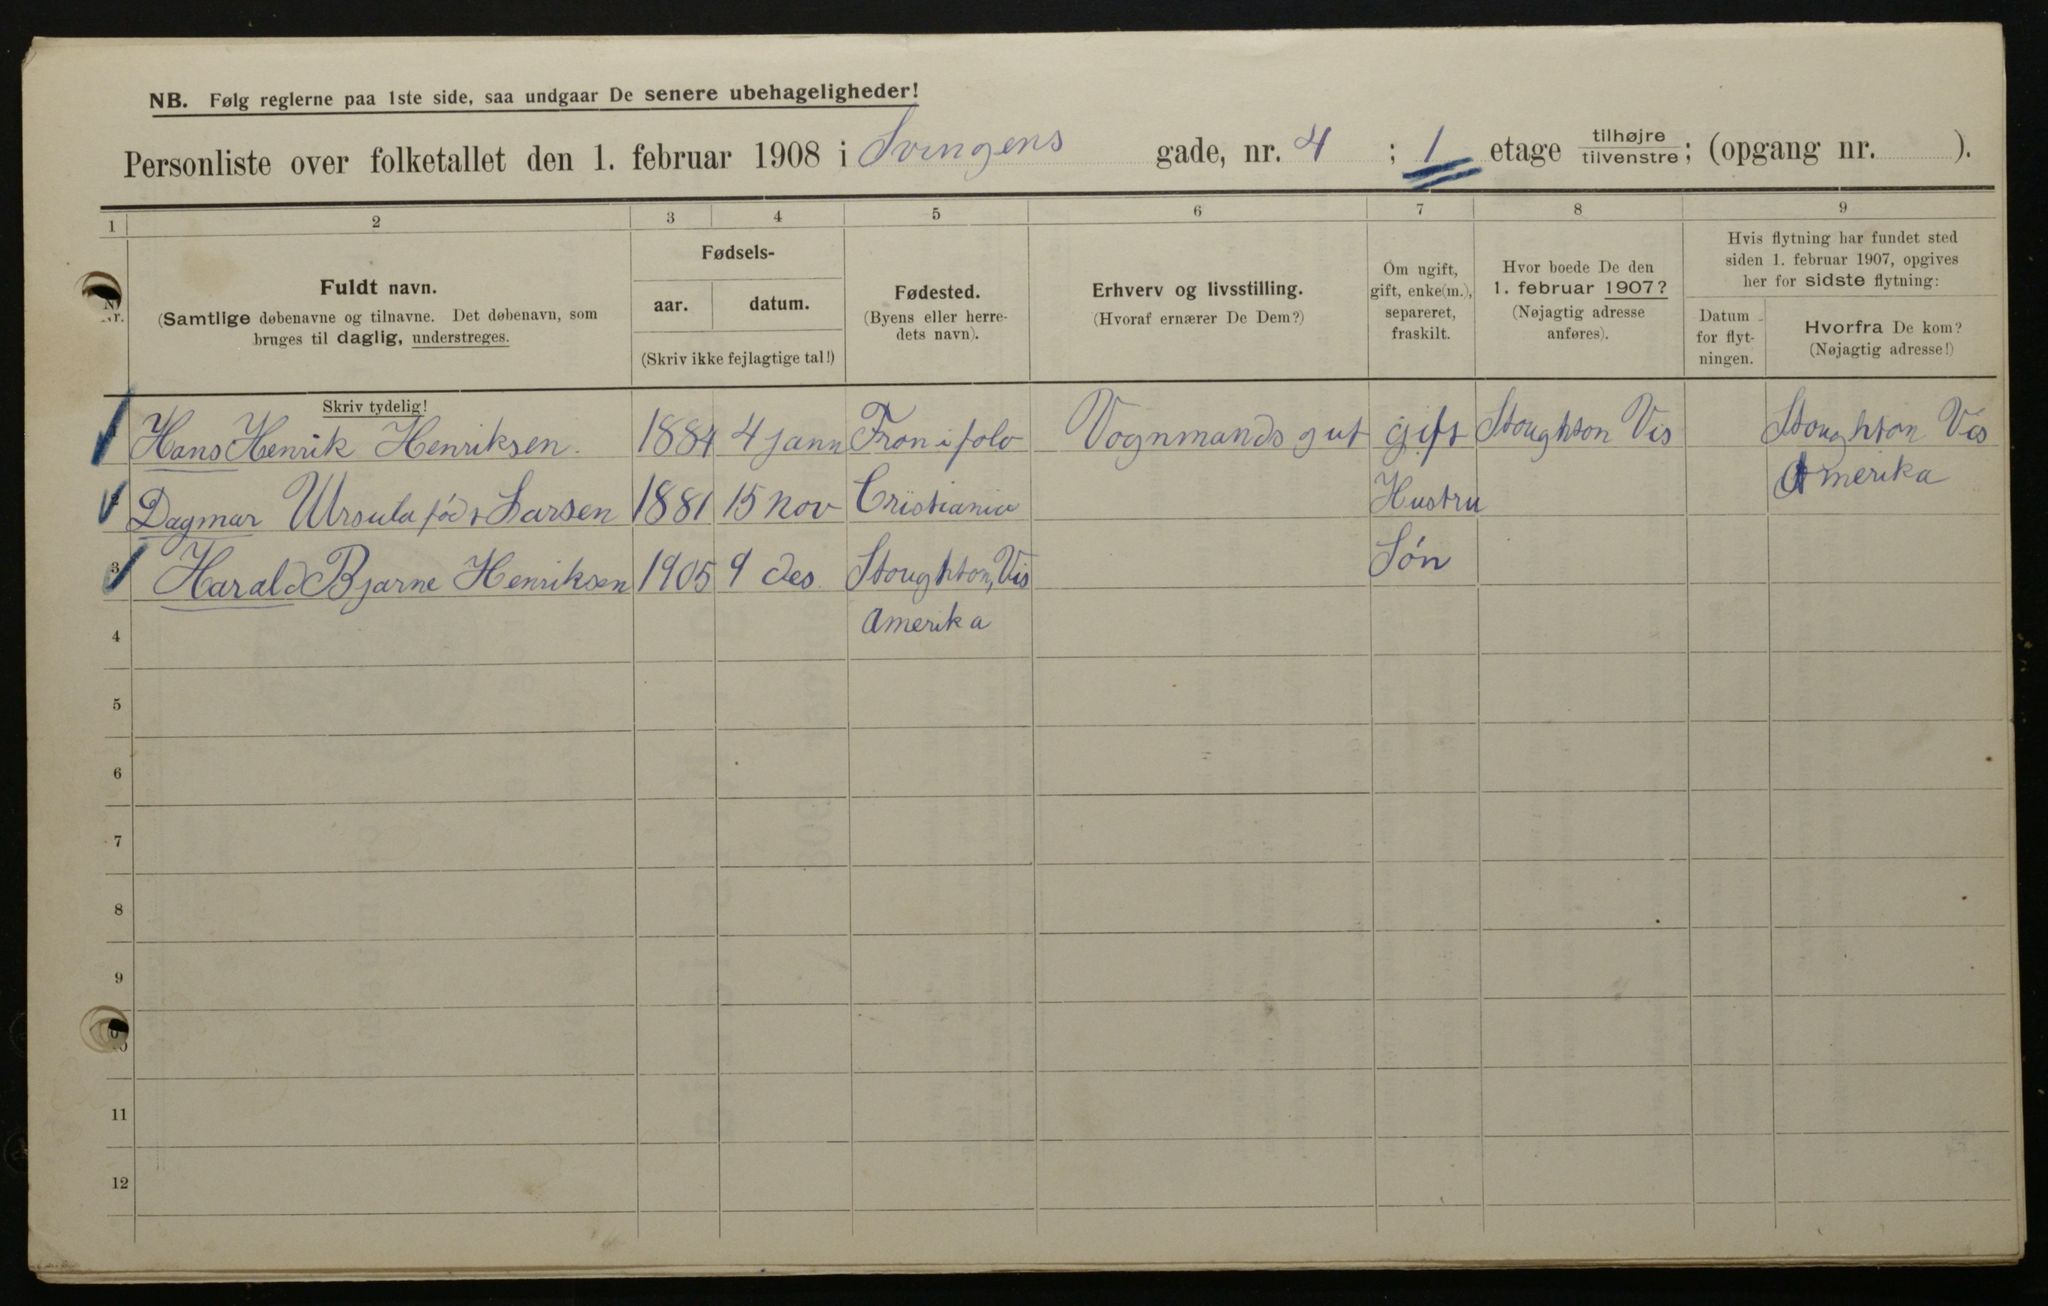 NB. Følg reglerne paa 1ste side, saa undgaar De senere ubehageligheder!
Personliste over folketallet den 1. februar 1908 i Svingens gade, nr. 4 ; 1 etage tilhøjre tilvenstre; (opgang nr. ).
1 2 3 4 5 6 7 8 9
Nr.
Fuldt navn.
(Samtlige døbenavne og tilnavne. Det døbenavn, som
bruges til daglig, understreges.
Fødsels-
aar. datum.
(Skriv ikke fejlagtige tal!)
Fødested.
(Byens eller herre-
dets navn).
Erhverv og livsstilling.
(Hvoraf ernærer De Dem?)
Om ugift,
gift, enke(m.),
separeret,
fraskilt.
Hvor boede De den
1. februar 1907?
(Nøjagtig adresse
anføres).
Hvis flytning har fundet sted
siden 1. februar 1907, opgives
her for sidste flytning:
Datum
for flyt-
ningen.
Hvorfra De kom?
(Nøjagtig adresse!)
Skriv tydelig!
Hans Henrik Henriksen. 1884 4 jann Fron i folo Vognmands gut gift Stoughton Vis Stoughton Vis
Amerika
Dagmar Ursula fød Larsen 1881 15 nov Cristiania Hustru
3 Harald Bjarne Henriksen 1905 9 des. Stoughton, Vis Søn
4 Amerika
5
6
7
8
9
10
11
12